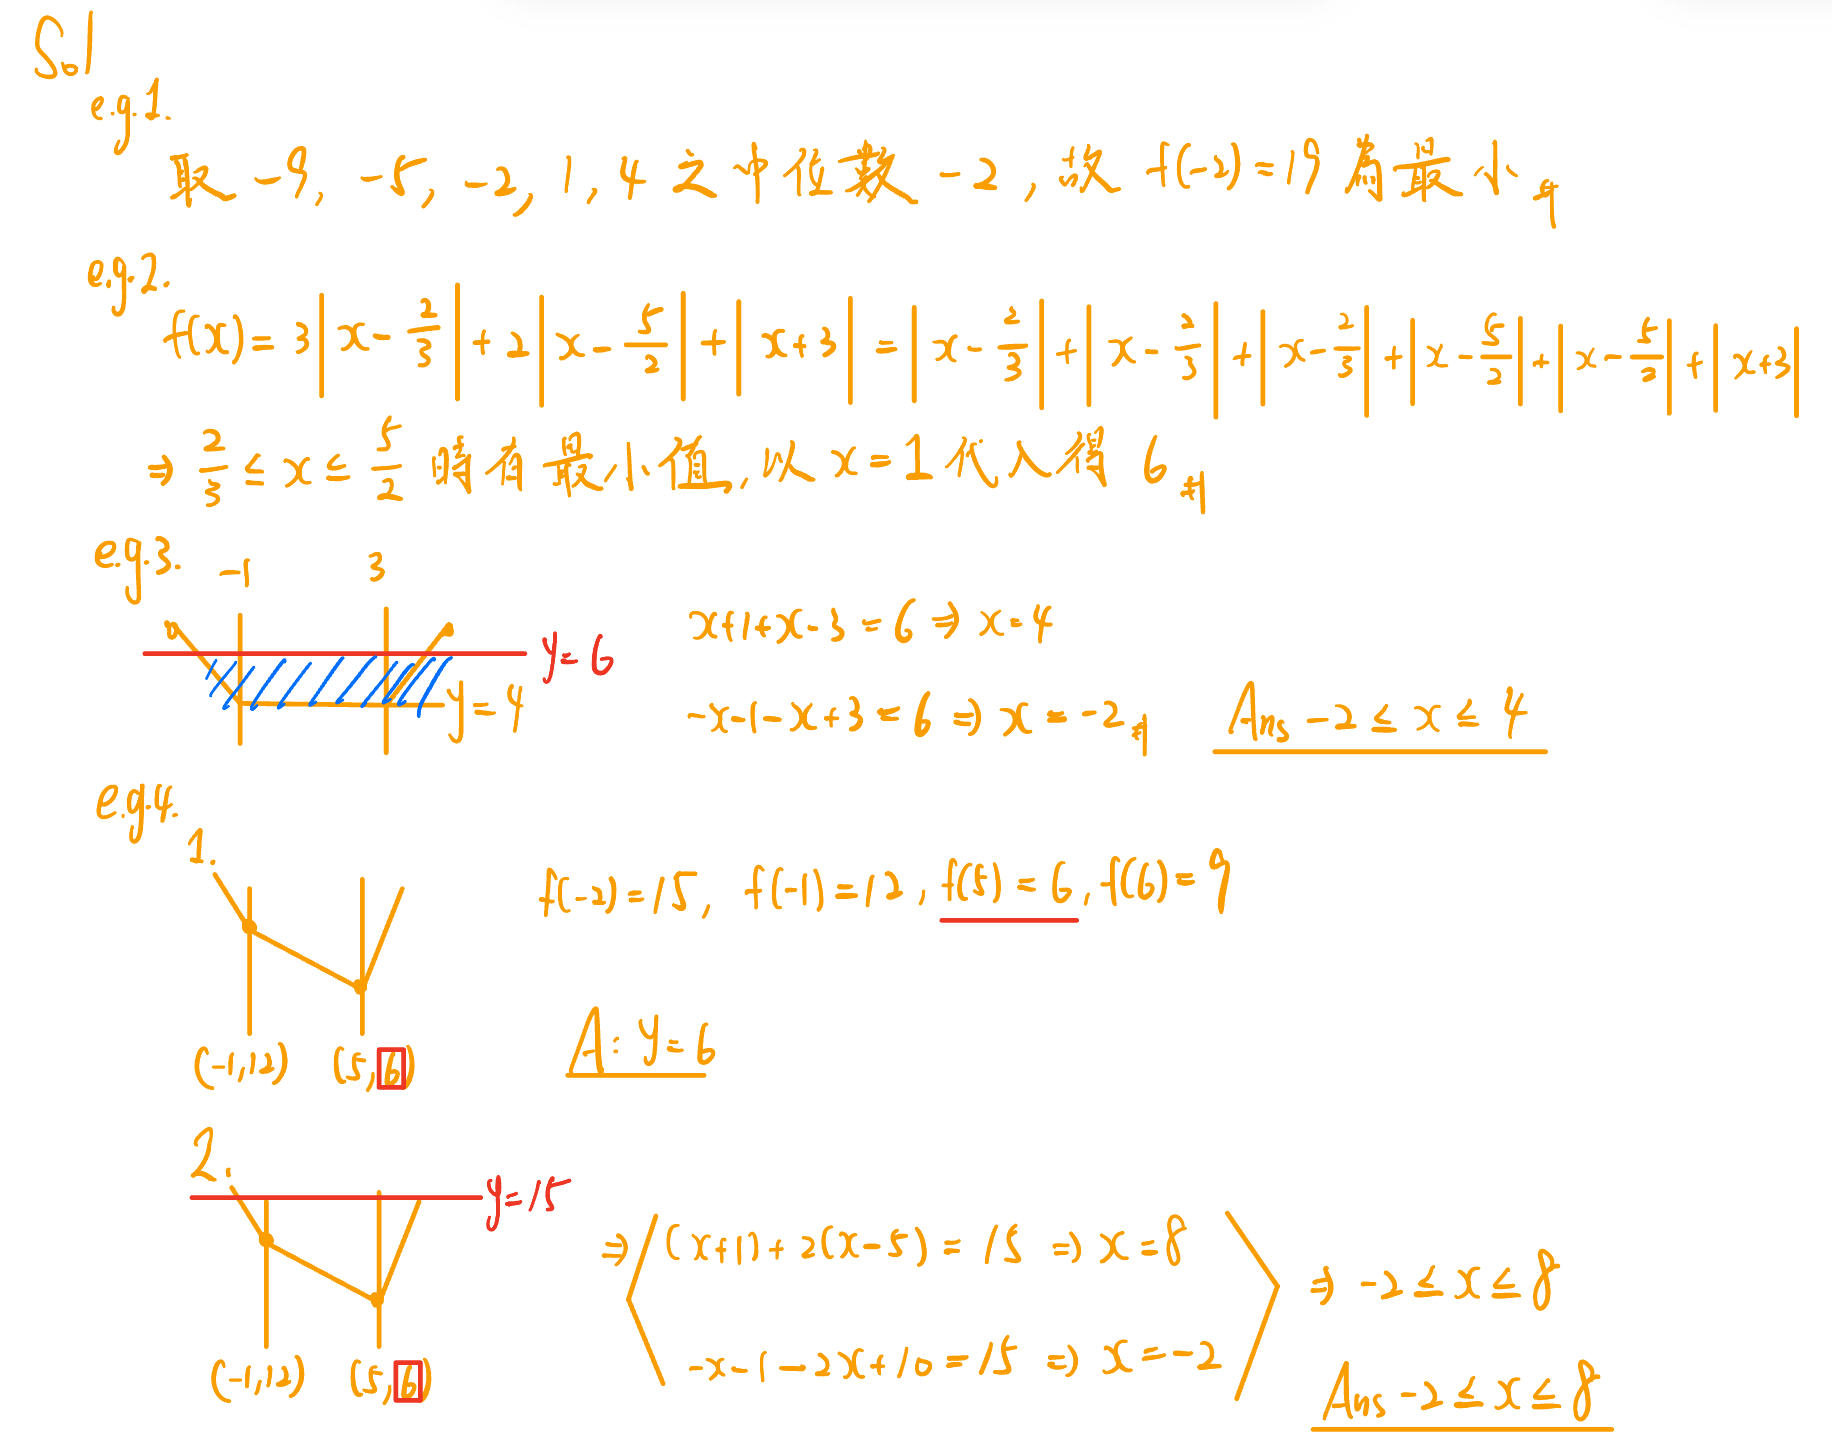 Sol
e.g.1.
取 -9, -5, -2, 1, 4 之中位數 -2, 故 f(-2)=19 為最小 #
e.g.2.
f(x)= 3|x-2/3| + 2|x-5/2| + |x+3| = |x-2/3| + |x-2/3| + |x-2/3| + |x-5/2| + |x-5/2| + |x+3|
⇒ 2/3 ≤ x ≤ 5/2 時有最小值, 以 x=1 代入得 6 #
e.g.3.
-1 3
y=6
y=4
x+1+x-3=6 ⇒ x=4
-x-1-x+3=6 ⇒ x=-2 #
Ans -2 ≤ x ≤ 4
e.g.4.
1.
f(-2)=15, f(-1)=12, f(5)=6, f(6)=9
(-1,12) (5,6)
A: y=6
2.
y=15
⇒ (x+1)+2(x-5)=15 ⇒ x=8
-x-1-2x+10=15 ⇒ x=-2
⇒ -2 ≤ x ≤ 8
(-1,12) (5,6)
Ans -2 ≤ x ≤ 8